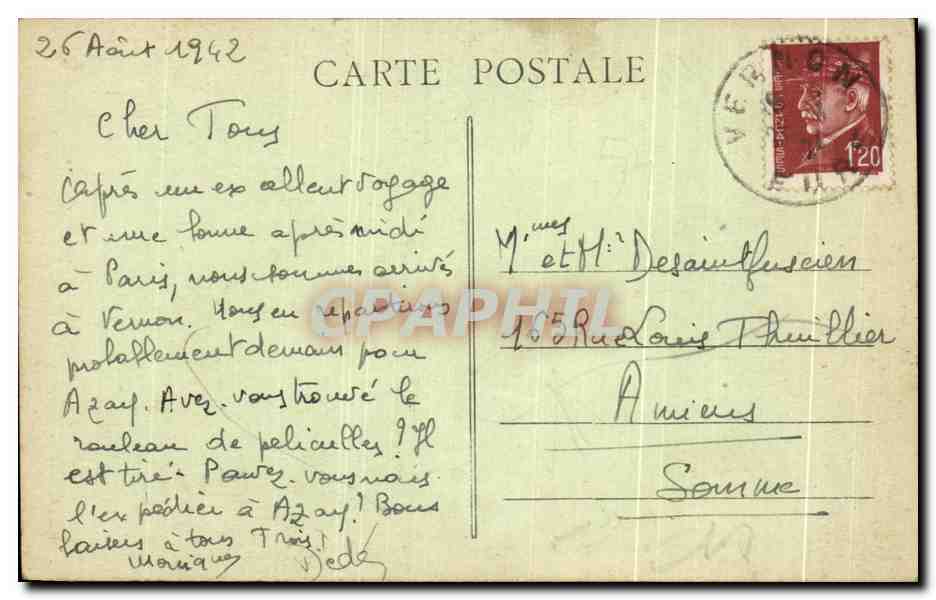 26 Août 1942
CARTE POSTALE
Cher Tous
après un excellent voyage
et une bonne après midi
à Paris, nous sommes arrivés
à Vernon. Nous en repartirons
probablement demain pour
Azay. Avez-vous trouvé le
rouleau de peliculles ? Il
est tiré. Pouvez-vous nous
l'expédier à Azay ? Bons
baisers à tous Trois !
Monique Dedé
VERNON
EURE
1F20
M.mes et Mr Desaintfuscien
165, Rue Louis Thuillier
Amiens
Somme
CPAPHIL